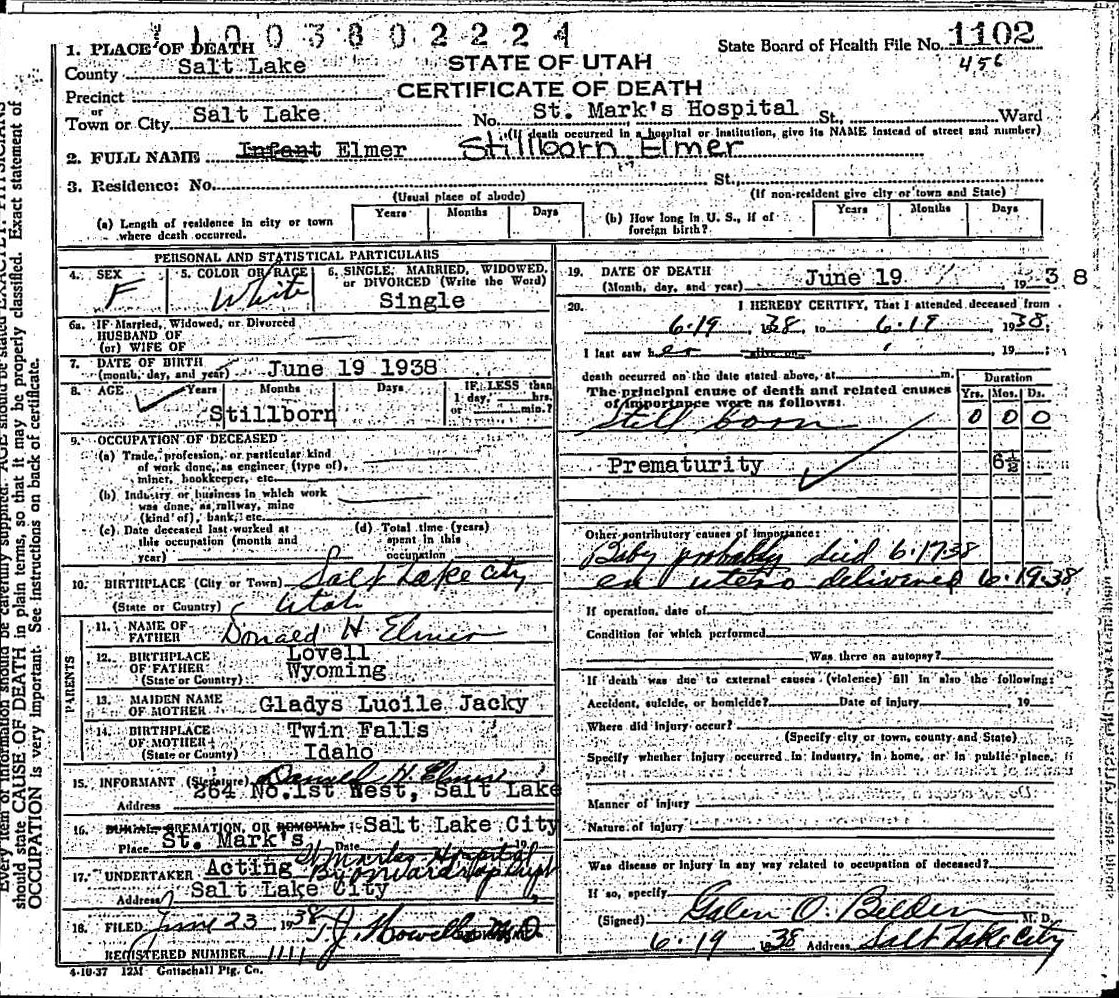 1 1 0 0 3 8 0 2 2 2 4
1. PLACE OF DEATH
State Board of Health File No. 1102
456
County Salt Lake
STATE OF UTAH
Precinct
CERTIFICATE OF DEATH
or
Town or City Salt Lake No. St. Mark's Hospital St., Ward
(If death occurred in a hospital or institution, give its NAME instead of street and number)
2. FULL NAME Infant Elmer Stillborn Elmer
3. Residence: No. St.,
(Usual place of abode) (If non-resident give city or town and State)
(a) Length of residence in city or town where death occurred. Years Months Days
(b) How long in U. S., if of foreign birth? Years Months Days
PERSONAL AND STATISTICAL PARTICULARS
4. SEX F
5. COLOR OR RACE White
6. SINGLE, MARRIED, WIDOWED, or DIVORCED (Write the Word)
Single
6a. IF Married, Widowed, or Divorced
HUSBAND OF
(or) WIFE OF
7. DATE OF BIRTH (month, day, and year) June 19 1938
8. AGE Years Months Days IF LESS than 1 day, hrs. or min.?
Stillborn
9. OCCUPATION OF DECEASED
(a) Trade, profession, or particular kind
of work done, as engineer (type of),
miner, bookkeeper, etc.
(b) Industry or business in which work
was done, as railway, mine
(kind of), bank, etc.
(c) Date deceased last worked at
this occupation (month and
year)
(d) Total time (years)
spent in this
occupation
10. BIRTHPLACE (City or Town) Salt Lake City
(State or Country) Utah
PARENTS
11. NAME OF FATHER Donald H Elmer
12. BIRTHPLACE OF FATHER (State or Country) Lovell
Wyoming
13. MAIDEN NAME OF MOTHER Gladys Lucile Jacky
14. BIRTHPLACE OF MOTHER (State or County) Twin Falls
Idaho
15. INFORMANT (Signature) Donald H. Elmer
Address 264 No. 1st West, Salt Lake
16. BURIAL, CREMATION, OR REMOVAL Salt Lake City
Place St. Mark's Date 19
17. UNDERTAKER Acting St Marks Hospital
Address Salt Lake City
18. FILED June 23, 1938 M.D.
REGISTERED NUMBER 1111
4-10-37 12M Gottschall Ptg. Co.
19. DATE OF DEATH (Month, day, and year) June 19, 1938
20. I HEREBY CERTIFY, That I attended deceased from
6-19, 1938, to 6-19, 1938;
I last saw her alive on , 19 ;
death occurred on the date stated above, at m.
The principal cause of death and related causes
of importance were as follows:
Duration
Yrs. Mos. Ds.
Still born 0 0 0
Prematurity 6½
Other contributory causes of importance:
Baby probably died 6-17-38
en utero delivered 6-19-38
If operation, date of
Condition for which performed
Was there an autopsy?
If death was due to external causes (violence) fill in also the following:
Accident, suicide, or homicide? Date of injury , 19
Where did injury occur?
(Specify city or town, county and State)
Specify whether injury occurred in industry, in home, or in public place.
Manner of injury
Nature of injury
Was disease or injury in any way related to occupation of deceased?
If so, specify
(Signed) Galen O. Belden M. D.
6-19 1938 Address Salt Lake City
Every item of information should be carefully supplied. AGE should be stated EXACTLY. PHYSICIANS
should state CAUSE OF DEATH in plain terms, so that it may be properly classified. Exact statement of
OCCUPATION is very important. See instructions on back of certificate.